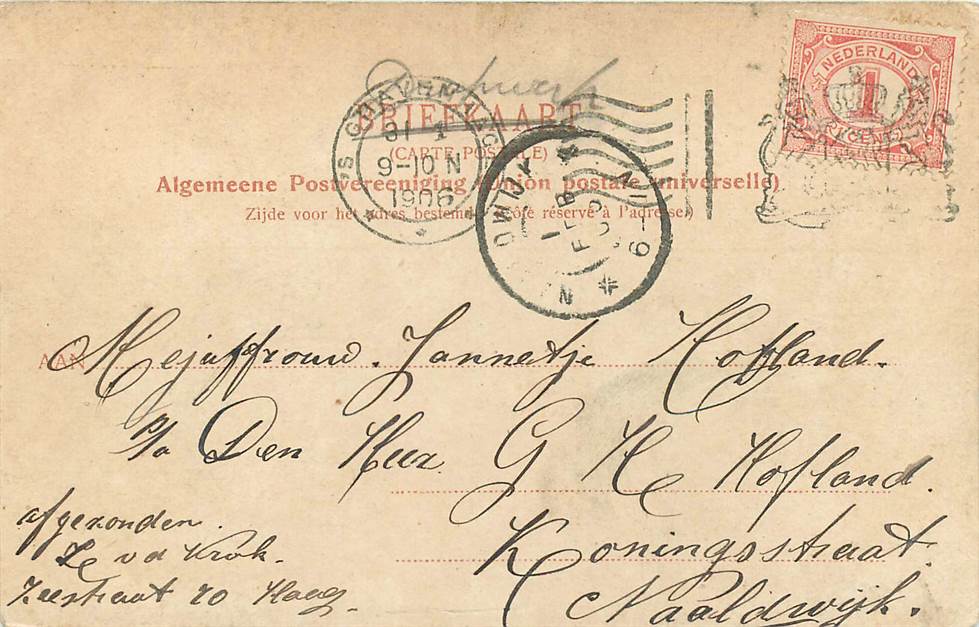 Drukwerk
BRIEFKAART
(CARTE POSTALE)
Algemeene Postvereeniging (Union postale universelle)
Zijde voor het adres bestemd (Côté réservé à l'adresse)
'S GRAVENHAGE
31 1
9-10 N
1906
1 FEB
NEDERLAND
1
CENT
AAN Mejuffrouw. Jannetje Hofland.
p/a Den Heer G H Hofland.
Koningsstraat
Naaldwijk.
afgezonden.
v d Kruk.
Zeestraat 20 Haag.